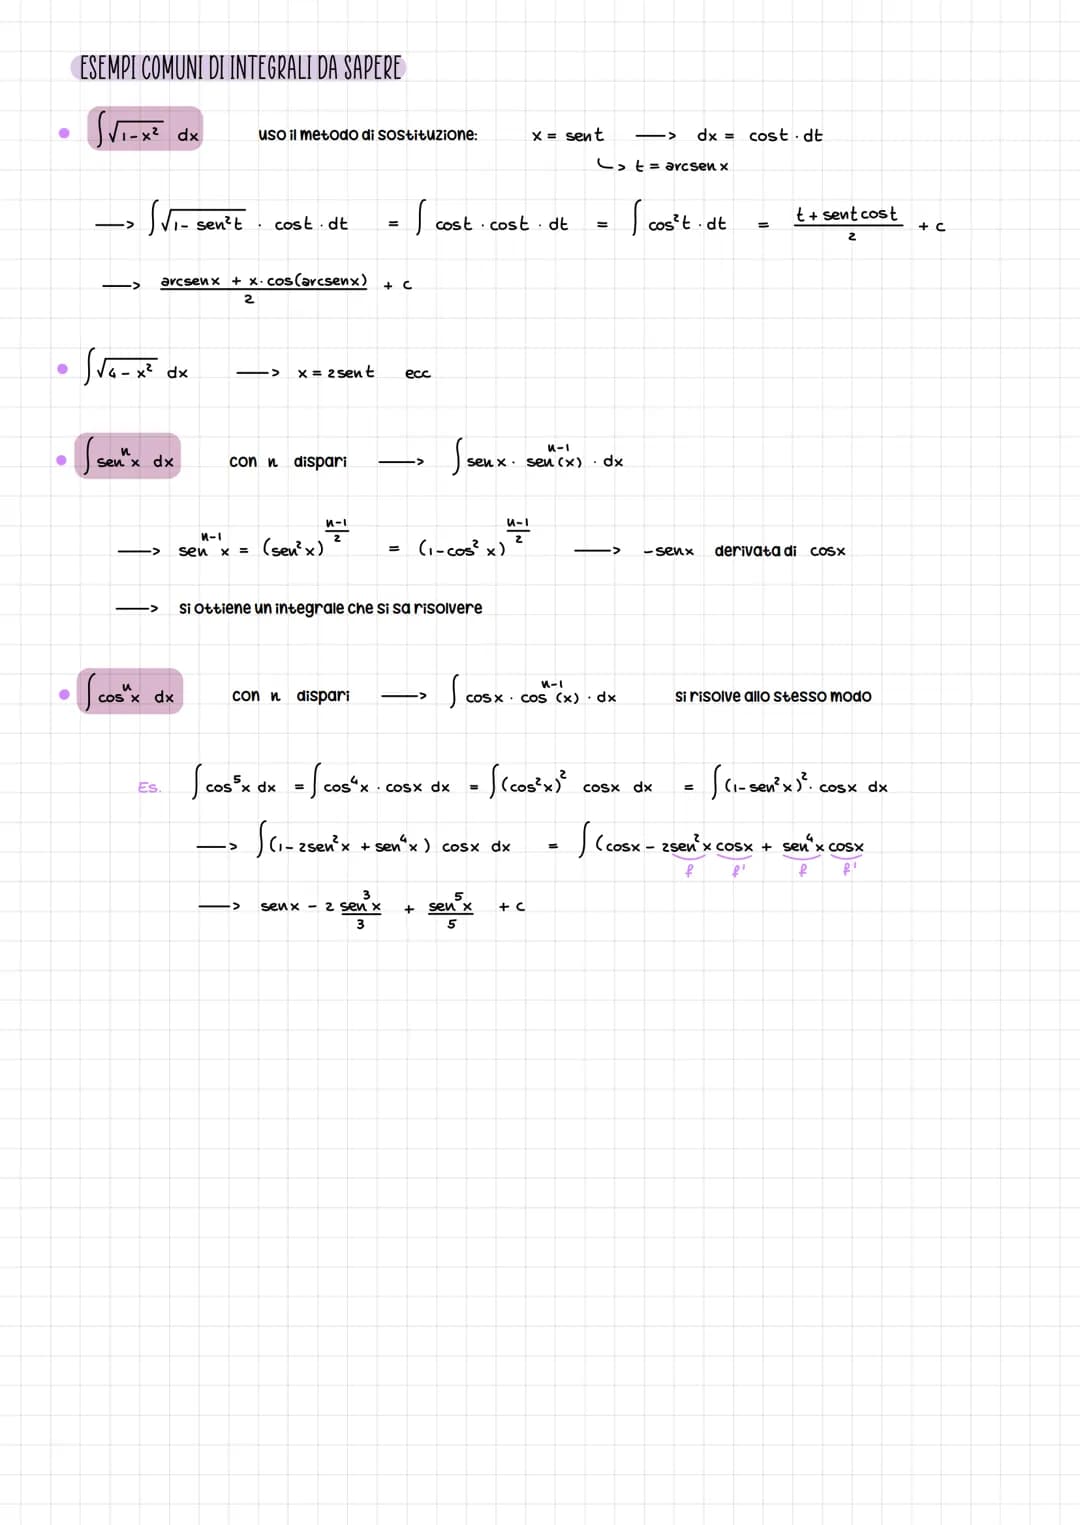 ESEMPI COMUNI DI INTEGRALI DA SAPERE
• ∫√1-x² dx uso il metodo di sostituzione: x = sent —> dx = cost · dt
↳ t = arcsen x
—> ∫√1- sen²t · cost · dt = ∫ cost · cost · dt = ∫ cos²t · dt = (t + sent cost)/2 + c
—> (arcsenx + x · cos(arcsenx))/2 + c
• ∫√4 - x² dx —> x = 2sent ecc
• ∫senⁿx dx con n dispari —> ∫senx · senⁿ⁻¹(x) · dx
—> senⁿ⁻¹x = (sen²x)^((n-1)/2) = (1-cos²x)^((n-1)/2) —> -senx derivata di cosx
—> si ottiene un integrale che si sa risolvere
• ∫cosⁿx dx con n dispari —> ∫cosx · cosⁿ⁻¹(x) · dx si risolve allo stesso modo
Es. ∫cos⁵x dx = ∫cos⁴x · cosx dx = ∫(cos²x)² cosx dx = ∫(1-sen²x)² · cosx dx
—> ∫(1-2sen²x + sen⁴x) cosx dx = ∫(cosx - 2sen²x cosx + sen⁴x cosx
f f' f f'
—> senx - 2 sen³x/3 + sen⁵x/5 + c